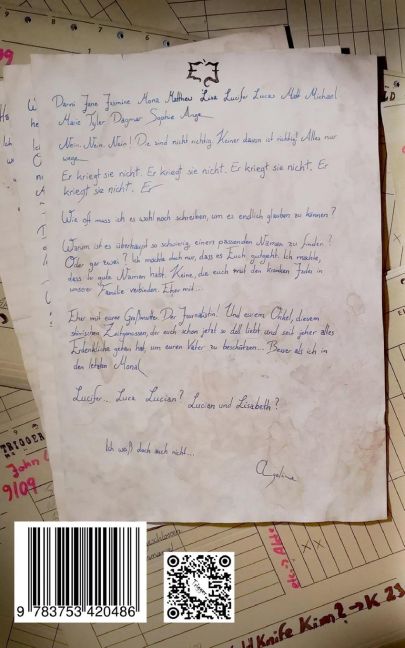 Danni Jane Jasmine Mona Matthew Lisa Lucifer Lucas Matt Michael
Marie Tyler Dagmar Sophie Ange
Nein. Nein. Nein! Die sind nicht richtig. Keiner davon ist richtig! Alles nur
wege
Er kriegt sie nicht. Er kriegt sie nicht. Er kriegt sie nicht. Er
kriegt sie nicht. Er
Wie oft muss ich es wohl noch schreiben, um es endlich glauben zu können?
Warum ist es überhaupt so schwierig, einen passenden Namen zu finden?
Oder gar zwei? Ich möchte doch nur, dass es Euch gutgeht. Ich möchte,
dass ihr gute Namen habt. Keine, die euch mit den kranken in
unserer Familie verbinden. Eher mit...
Eher mit eurer Großmutter. Der Journalistin! Und eurem Onkel, diesem
Zeitgenossen, der euch schon jetzt so doll liebt und seit jeher alles
Erdenkliche getan hat, um euren Vater zu beschützen... Besser als ich in
den letzten
Lucifer... Luca Lucian? Lucian und Lisabeth?
Ich weiß doch auch nicht...
Angelina
TRIGGER
John
9109
9 783753 420486
Knife Kim? → K. 23